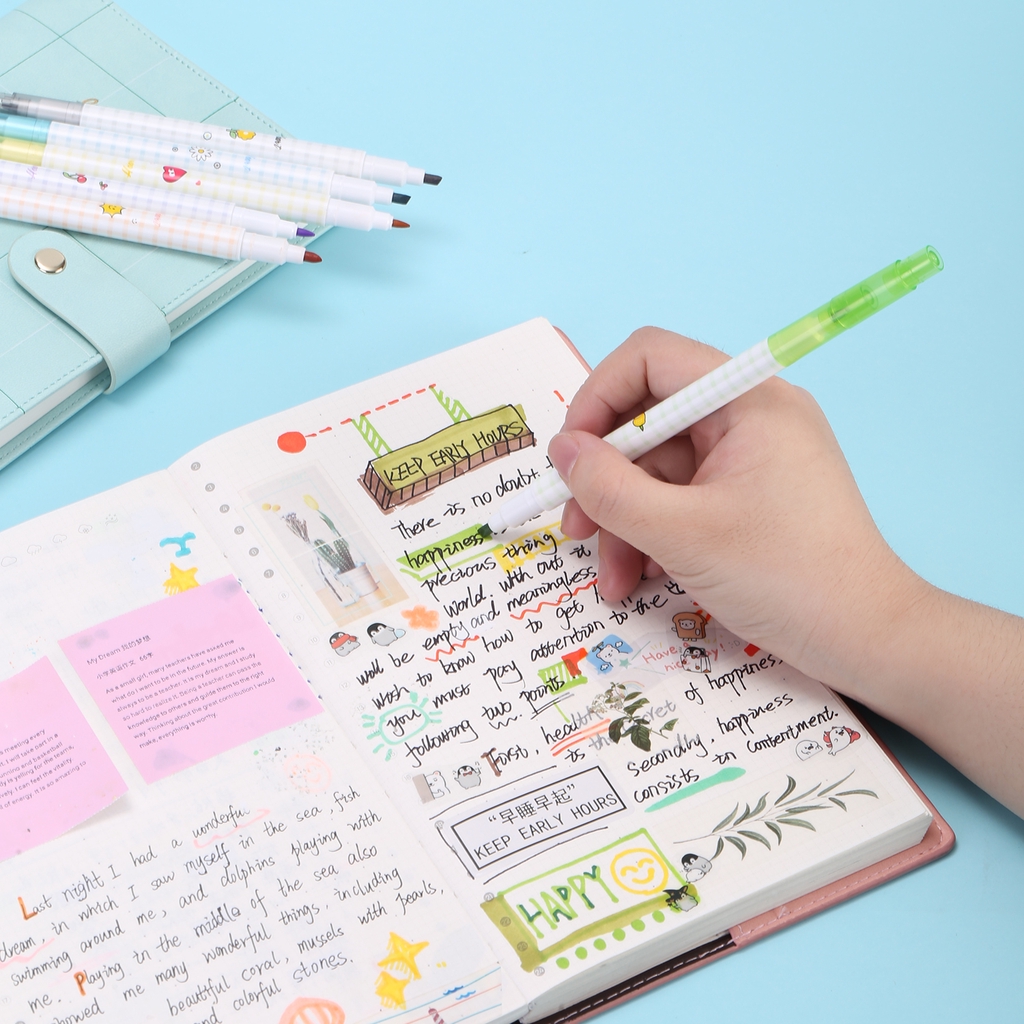 My Dream 我的梦想
小学英语作文 66字
As a small girl, many teachers have asked me
what do I want to be in the future. My answer is
to be a teacher. It is my dream and I study
so hard to realize it. Being a teacher can pass the
knowledge to others and guide them to the right
way. Thinking about the great contribution I would
make, everything is worthy.
meeting every
I will take part in a
running and basketball
yelling for the
I can feel the
of energy. It is so amazing to
Last night I had a wonderful
dream, in which I saw myself in the sea, fish
swimming around me, and dolphins playing with
me. Playing in the middle of the sea also
showed me many wonderful things, including
beautiful coral, mussels with pearls,
and colorful stones.
KEEP EARLY HOURS
There is no doubt
happiness
precious thing
World. With out it
will be empty and meaningless
wish to know how to get
you must pay attention to the
following two points
First, health
is the secret of happiness.
Secondly, happiness
consists in contentment.
Have
nice
"早睡早起"
KEEP EARLY HOURS
HAPPY